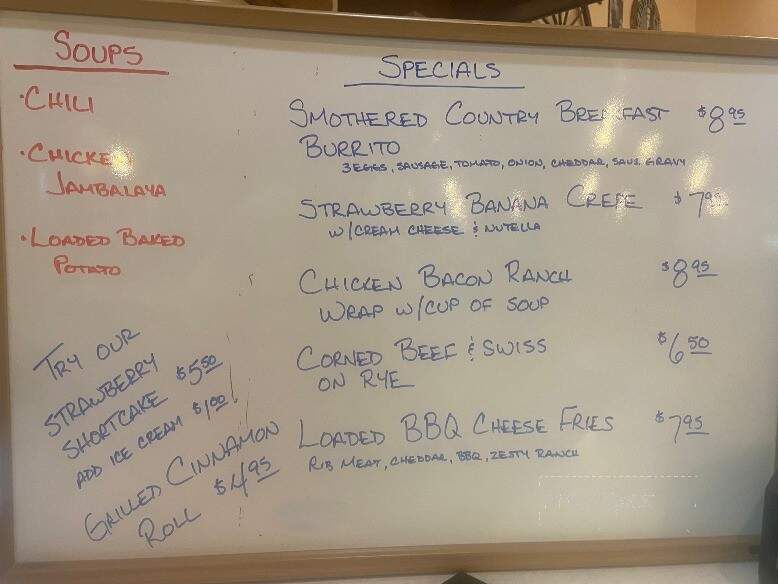 SOUPS
·CHILI
·CHICKEN
JAMBALAYA
·LOADED BAKED
POTATO
TRY OUR
STRAWBERRY
SHORTCAKE $5.50
ADD ICE CREAM $1.00!
GRILLED CINNAMON
ROLL $4.95
SPECIALS
SMOTHERED COUNTRY BREAKFAST $8.95
BURRITO
3 EGGS, SAUSAGE, TOMATO, ONION, CHEDDAR, SAUS. GRAVY
STRAWBERRY BANANA CREPE $7.95
W/CREAM CHEESE & NUTELLA
CHICKEN BACON RANCH $8.95
WRAP W/CUP OF SOUP
CORNED BEEF & SWISS $6.50
ON RYE
LOADED BBQ CHEESE FRIES $7.95
RIB MEAT, CHEDDAR, BBQ, ZESTY RANCH